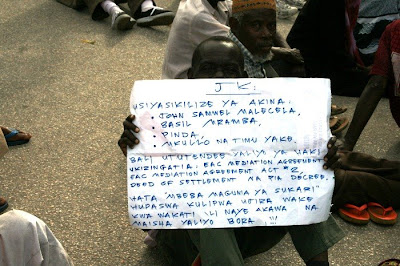 JK:
USIYASIKILIZE YA AKINA:
: JOHN SAMWEL MALECELA,
: BASIL MRAMBA,
: PINDA,
: MKULLO NA TIMU YAKE.
BALI UTUTENDEE YALIYO YA HAKI
UKIZINGATIA. EAC MEDIATION AGREEMENT
EAC MEDIATION AGREEMENT ACT #2,
DEED OF SETTLEMENT NA PIA DECREE.
HATA "MBEBA MAGUNIA YA SUKARI"
HUPASWA KULIPWA UJIRA WAKE
KWA WAKATI ILI NAYE AKAWA NA
MAISHA YALIYO BORA !!!